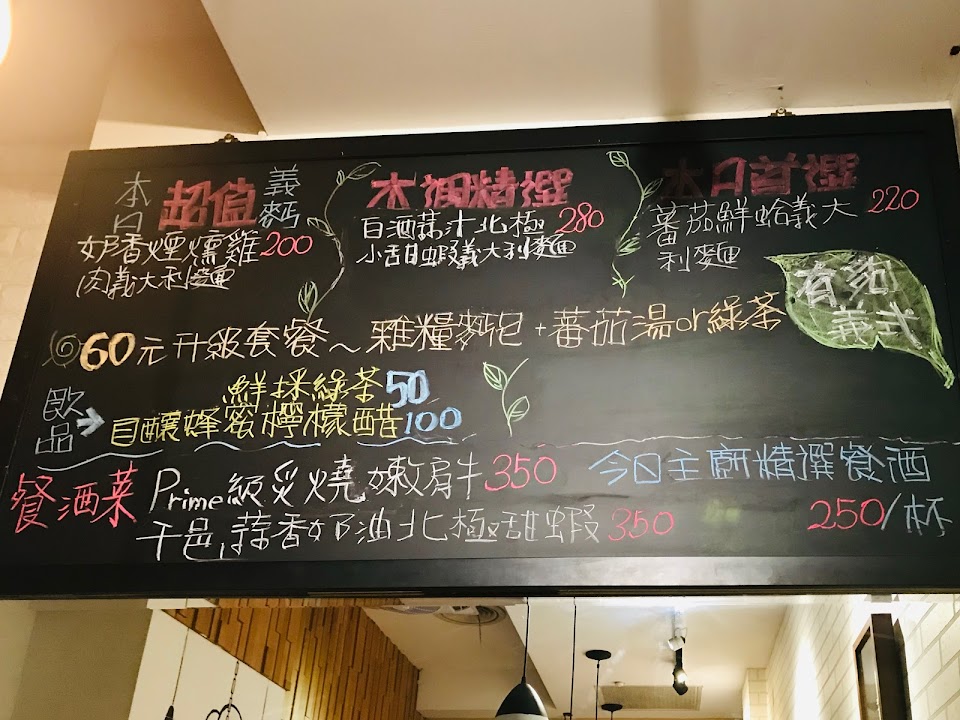 本日 超值 義麵
奶香煙燻雞 200
肉義大利麵
本週精選
白酒蒜汁北極 280
小甜蝦義大利麵
本日首選
蕃茄鮮蛤義大 220
利麵
有約
義式
60元升級套餐～雜糧麵包+蕃茄湯or綠茶
飲品→
鮮採綠茶 50
自釀蜂蜜檸檬醋 100
餐酒菜
Prime級炙燒嫩肩牛 350
干邑蒜香奶油北極甜蝦 350
今日主廚精選餐酒
250/杯